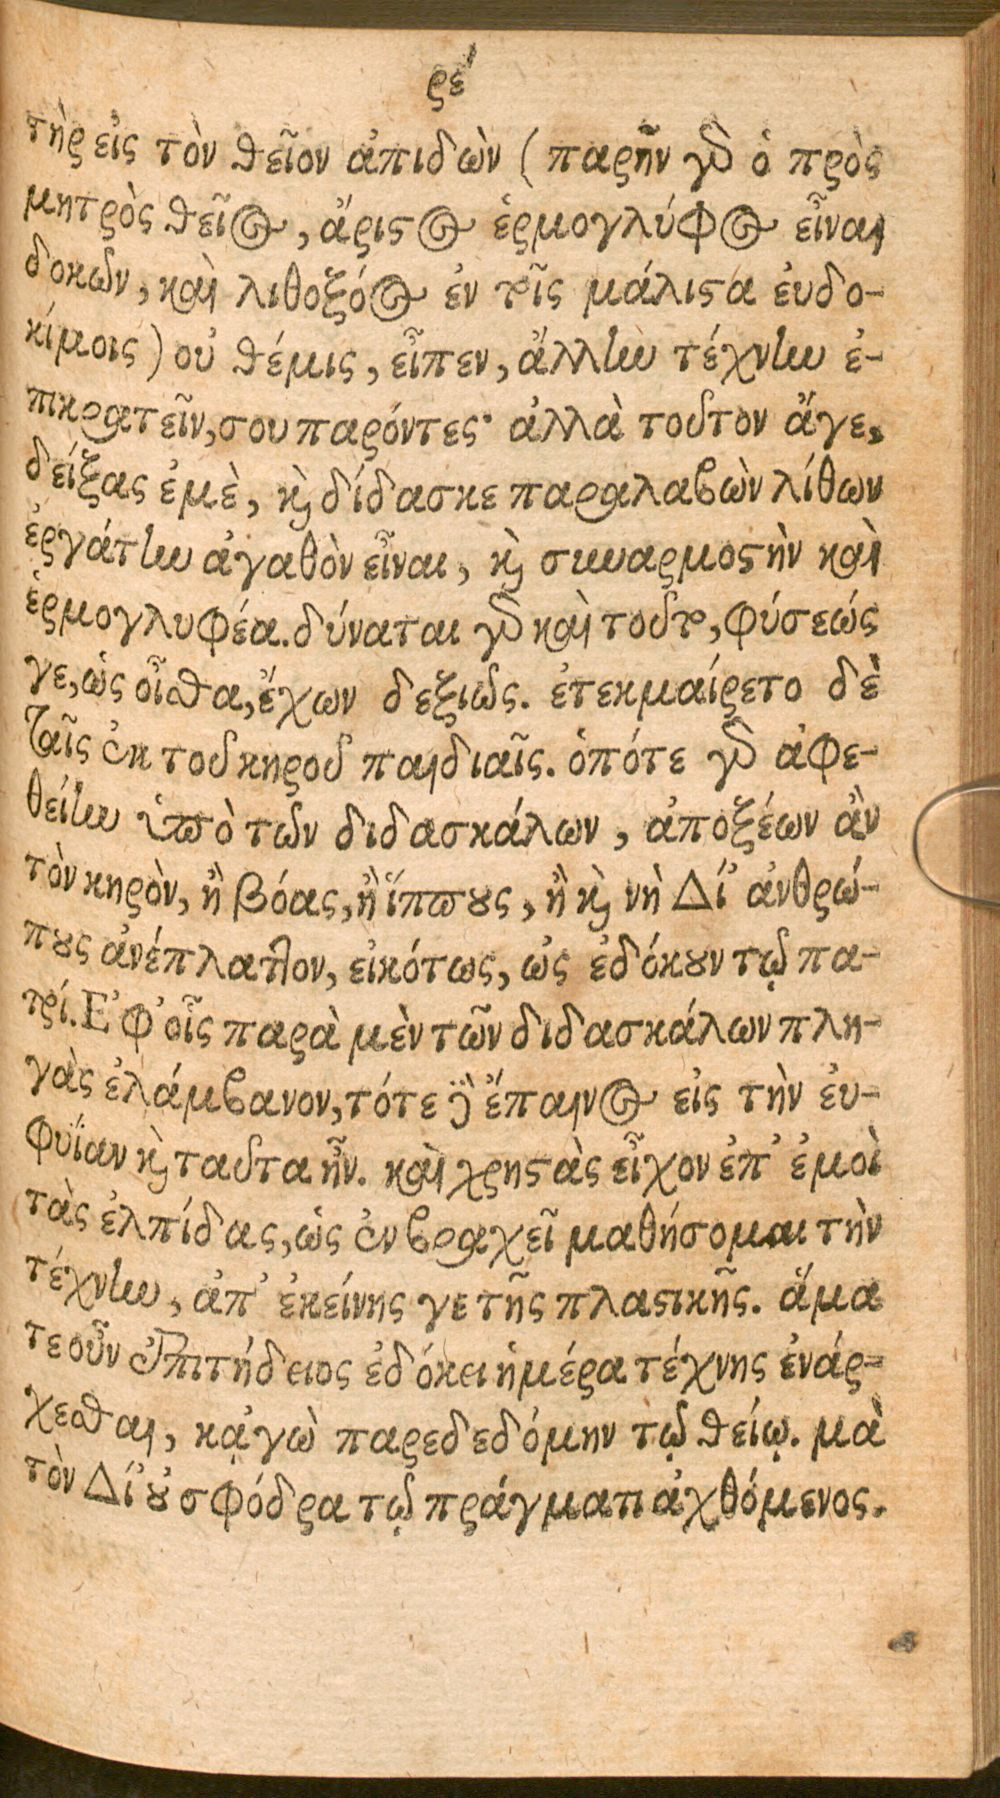 ρε´
τὴρ εἰς τὸν θεῖον ἀπιδὼν (παρῆν γὰρ ὁ πρὸς
μητρὸς θεῖος, ἄριστος ἑρμογλύφος εἶναι
δοκῶν, καὶ λιθοξόος ἐν τοῖς μάλιστα ἐυδο-
κίμοις) οὐ θέμις, εἶπεν, ἄλλην τέχνην ἐ-
πικρατεῖν, σου παρόντες· ἀλλὰ τοῦτον ἄγε,
δείξας ἐμὲ, καὶ δίδασκε παραλαβὼν λίθων
ἐργάτην ἀγαθὸν εἶναι, καὶ συναρμοστὴν καὶ
ἑρμογλυφέα. δύναται γὰρ καὶ τοῦτο, φύσεώς
γε, ὡς οἶσθα, ἔχων δεξιῶς. ἐτεκμαίρετο δὲ
ταῖς ἐκ τοῦ κηροῦ παιδιαῖς. ὁπότε γὰρ ἀφε-
θείην ὑπὸ τῶν διδασκάλων, ἀποξέων ἂν
τὸν κηρὸν, ἢ βόας, ἢ ἵππους, ἢ καὶ νὴ Δί᾽ ἀνθρώ-
πους ἀνέπλαττον, εἰκότως, ὡς ἐδόκουν τῷ πα-
τρί. Ἐφ᾽ οἷς παρὰ μὲν τῶν διδασκάλων πλη-
γὰς ἐλάμβανον, τότε δὲ ἔπαινος εἰς τὴν ἐυ-
φυΐαν καὶ ταῦτα ἦν. καὶ χρηστὰς εἶχον ἐπ᾽ ἐμοὶ
τὰς ἐλπίδας, ὡς ἐν βραχεῖ μαθήσομαι τὴν
τέχνην, ἀπ᾽ ἐκείνης γε τῆς πλαστικῆς. ἅμα
τε οὖν ἐπιτήδειος ἐδόκει ἡμέρα τέχνης ἐνάρ-
χεσθαι, κᾀγὼ παρεδεδόμην τῷ θείῳ. μὰ
τὸν Δί᾽ οὐ σφόδρα τῷ πράγματι ἀχθόμενος.